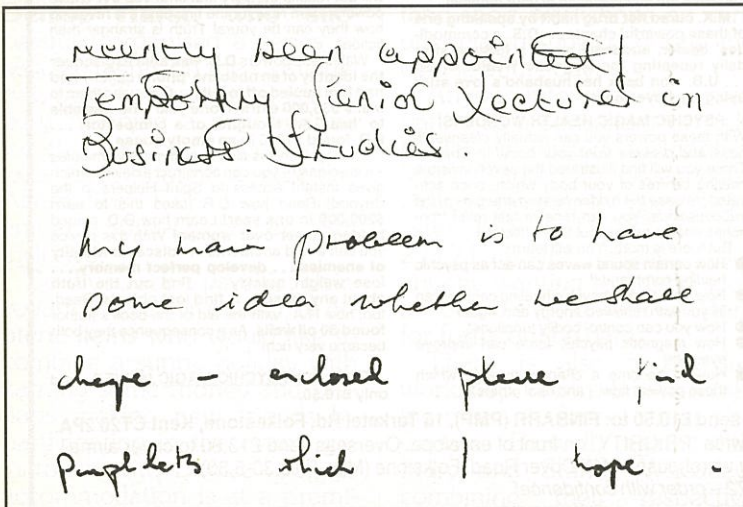 recently been appointed
temporary Senior Lecturer in
Business Studies.
My main problem is to have
some idea whether we shall
change - enclosed please find
pamphlets which I hope